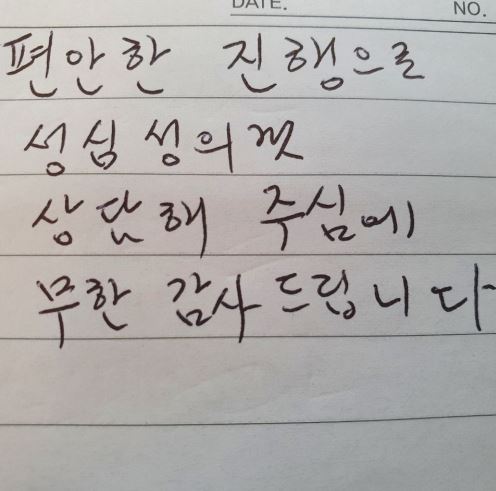 DATE. NO.
편안한 진행으로
성심성의껏
상담해 주심에
무한 감사드립니다